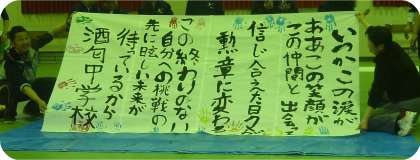 いつかこの涙が
ああこの笑顔が
この仲間と出会え
信じ合えた日々が
勲章に変わる
この終わりのない
自分への挑戦の
先に眩しい未来が
待っているから
酒匂中学校